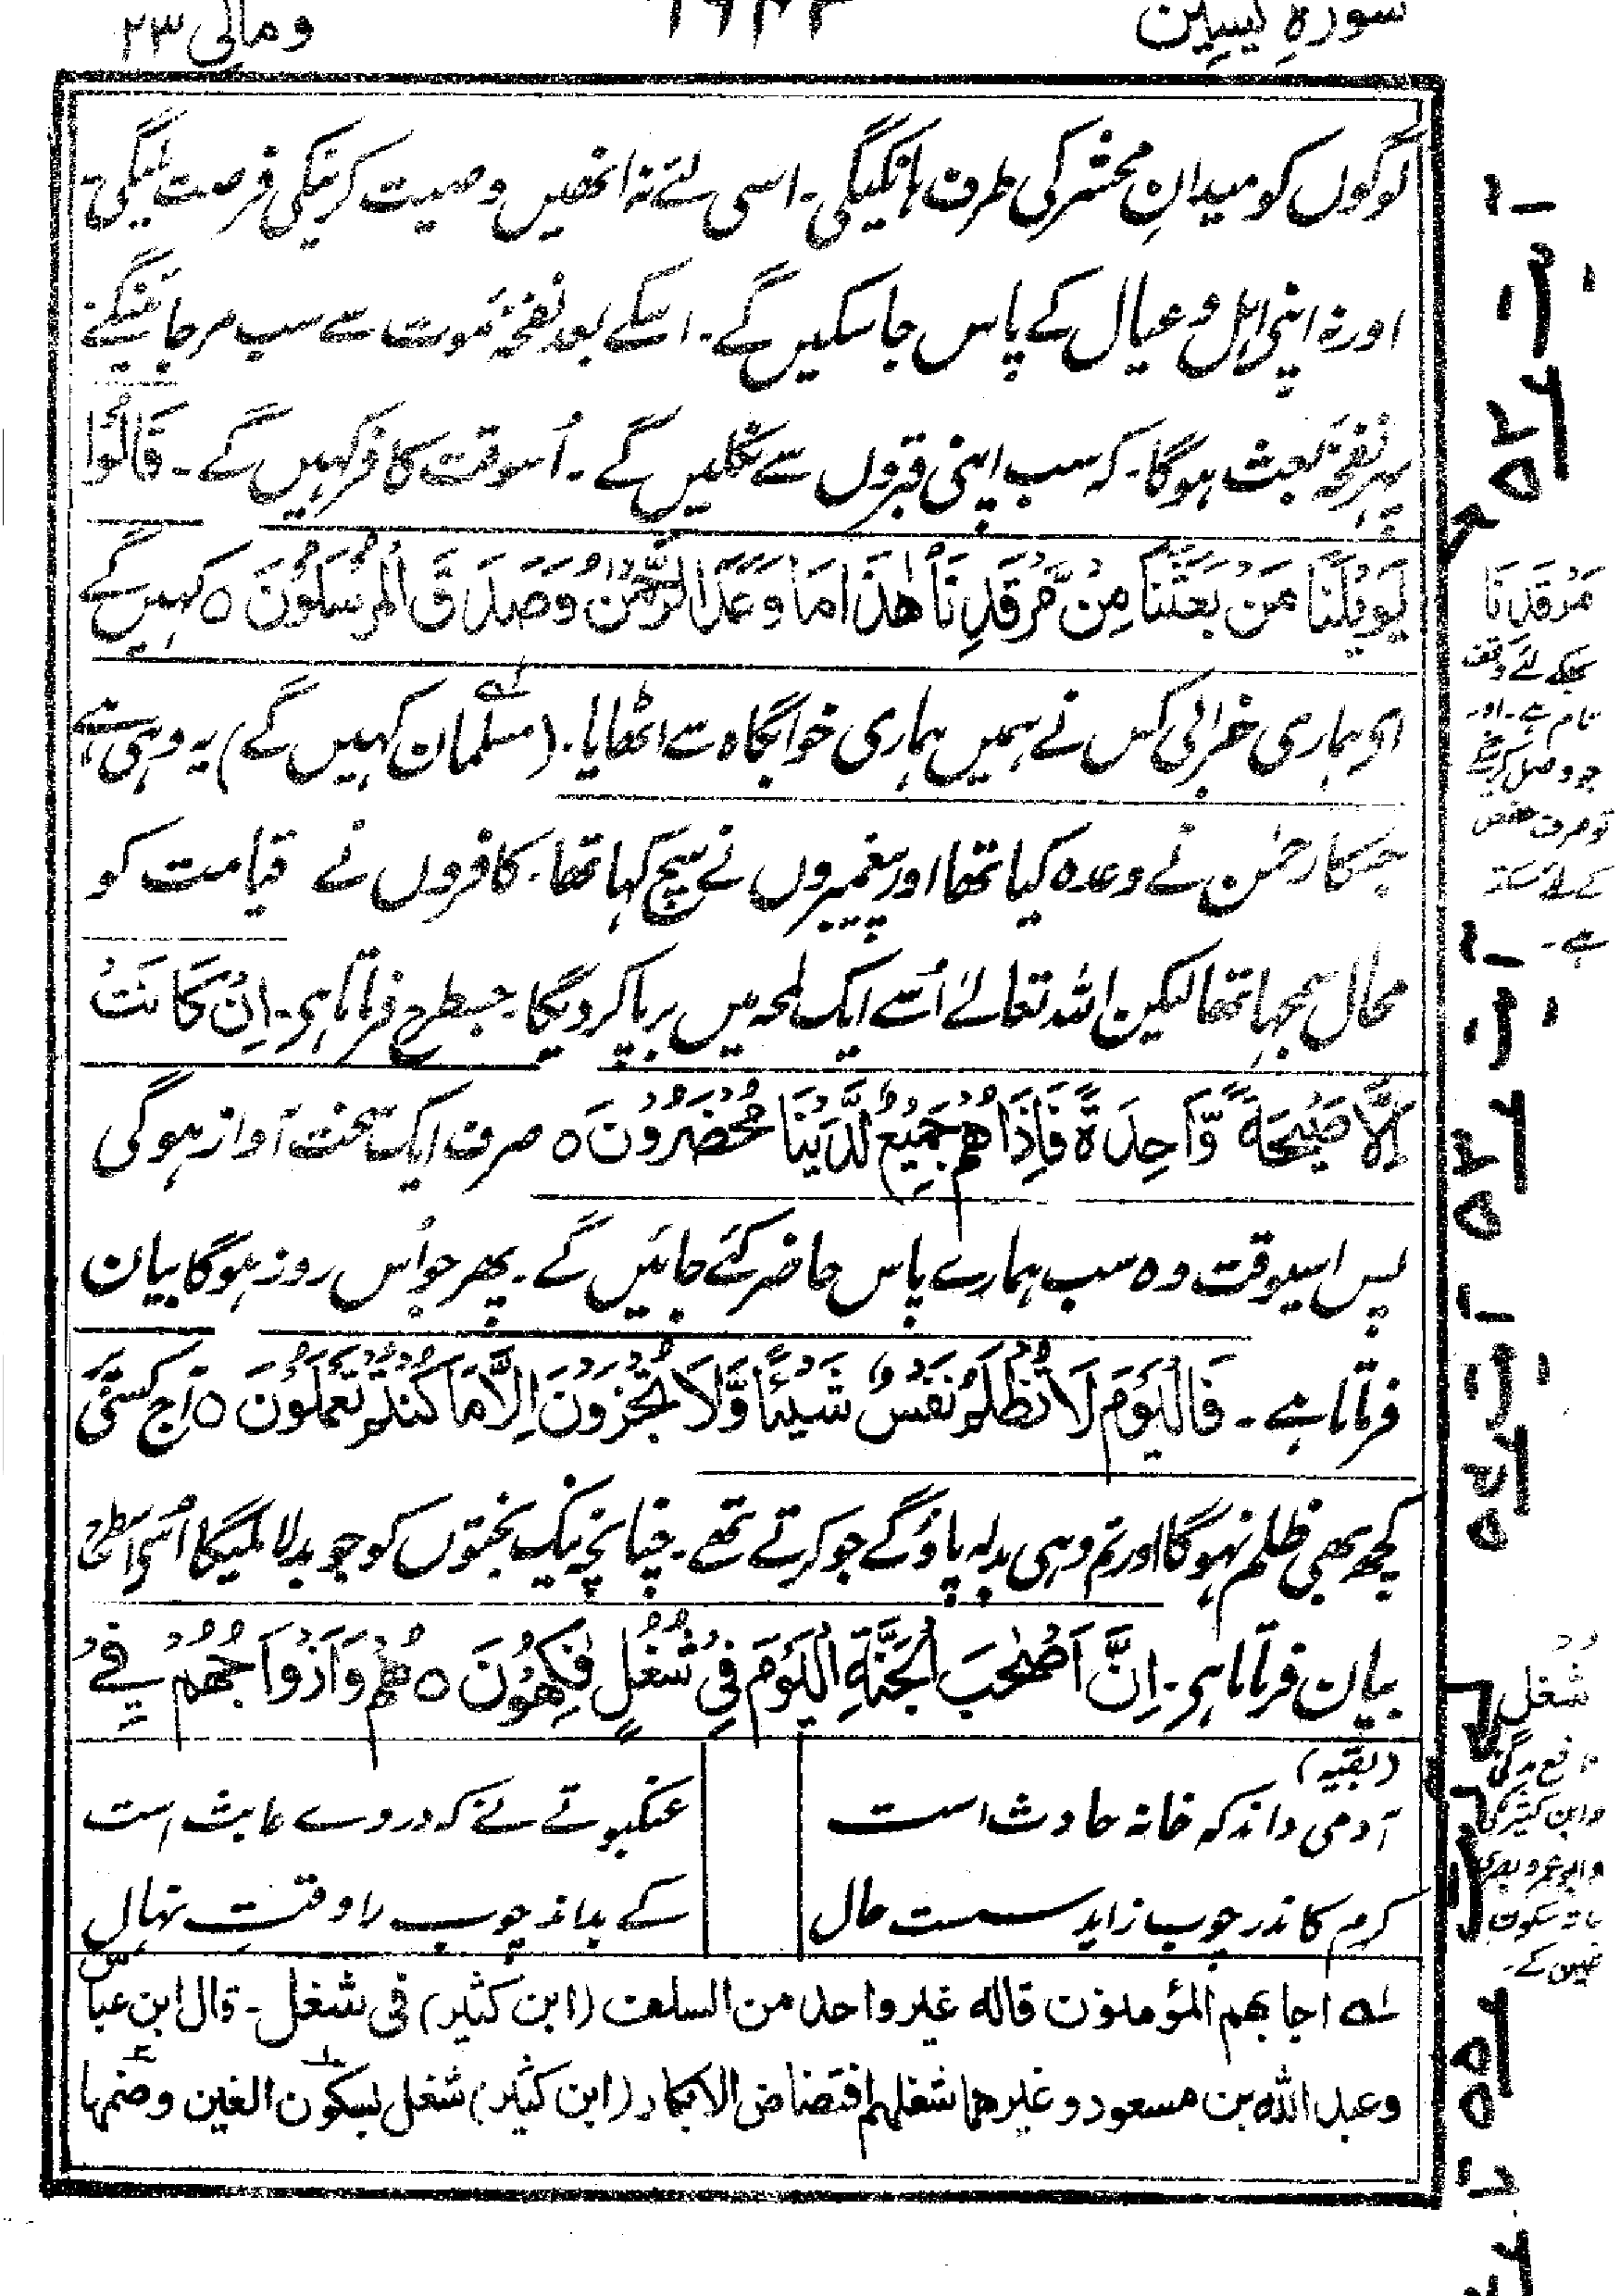 سورہ یٰسین
ومالی ۲۳
لوگوں کو میدانِ محشر کی طرف ہانکیگی۔ اسی لئے نہ انھیں وصیت کرنیکی فرصت ملیگی۔
اور نہ اپنی اہل و عیال کے پاس جا سکیں گے۔ اسکے بعد نفخۂ موت سے سب مرجائینگے
پہر نفخۂ بعث ہوگا۔ کہ سب اپنی قبروں سے نکلیں گے۔ اُسوقت کافر کہیں گے۔ قَالُوْا
یٰوَیْلَنَا مَنْۢ بَعَثَنَا مِنْ مَّرْقَدِنَا ھٰذَا مَا وَعَدَ الرَّحْمٰنُ وَصَدَقَ الْمُرْسَلُوْنَ ہ کہیں گے
اے ہماری خرابی کس نے ہمیں ہماری خوابگاہ سے اٹھایا۔ (مسلمان کہیں گے) یہ وہی ہے
جسکا رحمٰن نے وعدہ کیا تھا اور پیغمبروں نے سچ کہا تھا۔ کافروں نے قیامت کو
محال سمجہا تھا لیکن اللہ تعالےٰ اُسے ایک لمحہ میں برپا کر دیگا۔ جسطرح فرماتا ہی۔ اِنْ کَانَتْ
اِلَّا صَیْحَةً وَّاحِدَةً فَاِذَا ھُمْ جَمِیْعٌ لَّدَیْنَا مُحْضَرُوْنَ ہ صرف ایک سخت آواز ہوگی
پس اسیوقت وہ سب ہمارے پاس حاضر کئے جائیں گے۔ پھر جو اُس روز ہوگا بیان
فرماتا ہے۔ فَالْیَوْمَ لَا تُظْلَمُ نَفْسٌ شَیْئًا وَّلَا تُجْزَوْنَ اِلَّا مَا کُنْتُمْ تَعْمَلُوْنَ ہ آج کسی پر
کچھ بھی ظلم نہوگا اور تم وہی بدلہ پاؤ گے جو کرتے تھے۔ چنانچہ نیک بختوں کو جو بدلا ملیگا اُسے اسطرح
بیان فرماتا ہی۔ اِنَّ اَصْحٰبَ الْجَنَّةِ الْیَوْمَ فِیْ شُغُلٍ فٰکِھُوْنَ ہ ھُمْ وَاَزْوَاجُھُمْ فِیْ
(بقیہ)
آدمی داند کہ خانہ حادث است
عنکبوتے نے کہ در وے عابث است
کرم کاندر چوب زاید سست حال
کے بداند چوب را وقتِ نہال
لہ اجابھم المؤمنون قاله غیر واحد من السلف (ابن کثیر) فی شغل۔ قال ابن عباس
وعبد الله بن مسعود و غیرھما شغلهم افتضاض الابکار (ابن کثیر) شغل بسکون الغین وضمها
مَرْقَدِنَا
سکے لئے وقف
تام ہے۔ اور
جو وصل کرتے
تو صرف حفص
کے لئے سکتہ
ہے۔
شُغُل
نافع مدگی
و ابن کثیر مکی
و ابو عمرو بصری
بسکون
غین کے۔